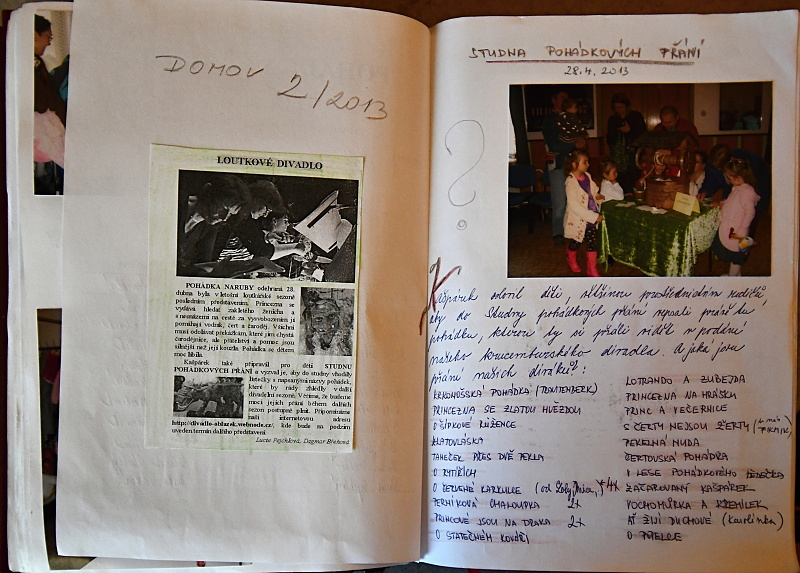 DOMOV 2/2013
LOUTKOVÉ DIVADLO
POHÁDKA NARUBY odehraná 28.
dubna byla v letošní loutkářské sezoně
posledním představením. Princezna se
vydává hledat zakletého ženicha a
neomázeni na cestě za vysvobozením jí
pomáhají vodník, čert a čaroděj. Všichni
musí odolávat překážkám, které jim chystá
čarodějnice, ale přátelství a pomoc jsou
silnější než její kouzla. Pohádka se dětem
moc líbila.
Kašpárek také připravil pro děti STUDNU
POHÁDKOVÝCH PŘÁNÍ a vyzval je, aby do studny vhodily
lístečky s napsanými názvy pohádek,
které by rády zhlédly v další
divadelní sezoně. Věříme, že budeme
moci jejich přání během dalších
sezon postupně plnit. Připomínáme
naši internetovou adresu
http://divadlo-oblazek.webnode.cz/, kde bude na podzim
uveden termín dalšího představení.
Lucie Dagmar
STUDNA POHÁDKOVÝCH PŘÁNÍ
28.4. 2013
?
Kašpárek oslovil děti, většinou prostřednictvím rodičů,
aby do Studny pohádkových přání napsali přání tu
pohádku, kterou by si přáli vidět v podání
našeho krucemburského divadla. A jaká jsou
přání našich diváků?:
KRKONOŠSKÁ POHÁDKA (TRAUTENBERK)
PRINCEZNA SE ZLATOU HVĚZDOU
O ŠÍPKOVÉ RŮŽENCE
ZLATOVLÁSKA
TANEČEK PŘES DVĚ PEKLA
O RYTÍŘÍCH
O ČERVENÉ KARKULCE (od 4x
PERNÍKOVÁ CHALOUPKA 2x
PRINCOVÉ JSOU NA DRAKA 2x
O STATEČNÉM KOVÁŘI
LOTRANDO A ZUBEJDA
PRINCEZNA NA HRÁŠKU
PRINC A VEČERNICE
S ČERTY NEJSOU ŽERTY
PEKELNÁ NUDA
ČERTOVSKÁ POHÁDKA
Z LESE POHÁDKOVÉHO DĚDEČKA
ZAČAROVANÝ KAŠPÁREK
VOCHOMŮRKA A KŘEMÍLEK
AŤ ŽIJÍ DUCHOVÉ (Karolínka)
O PYELCE